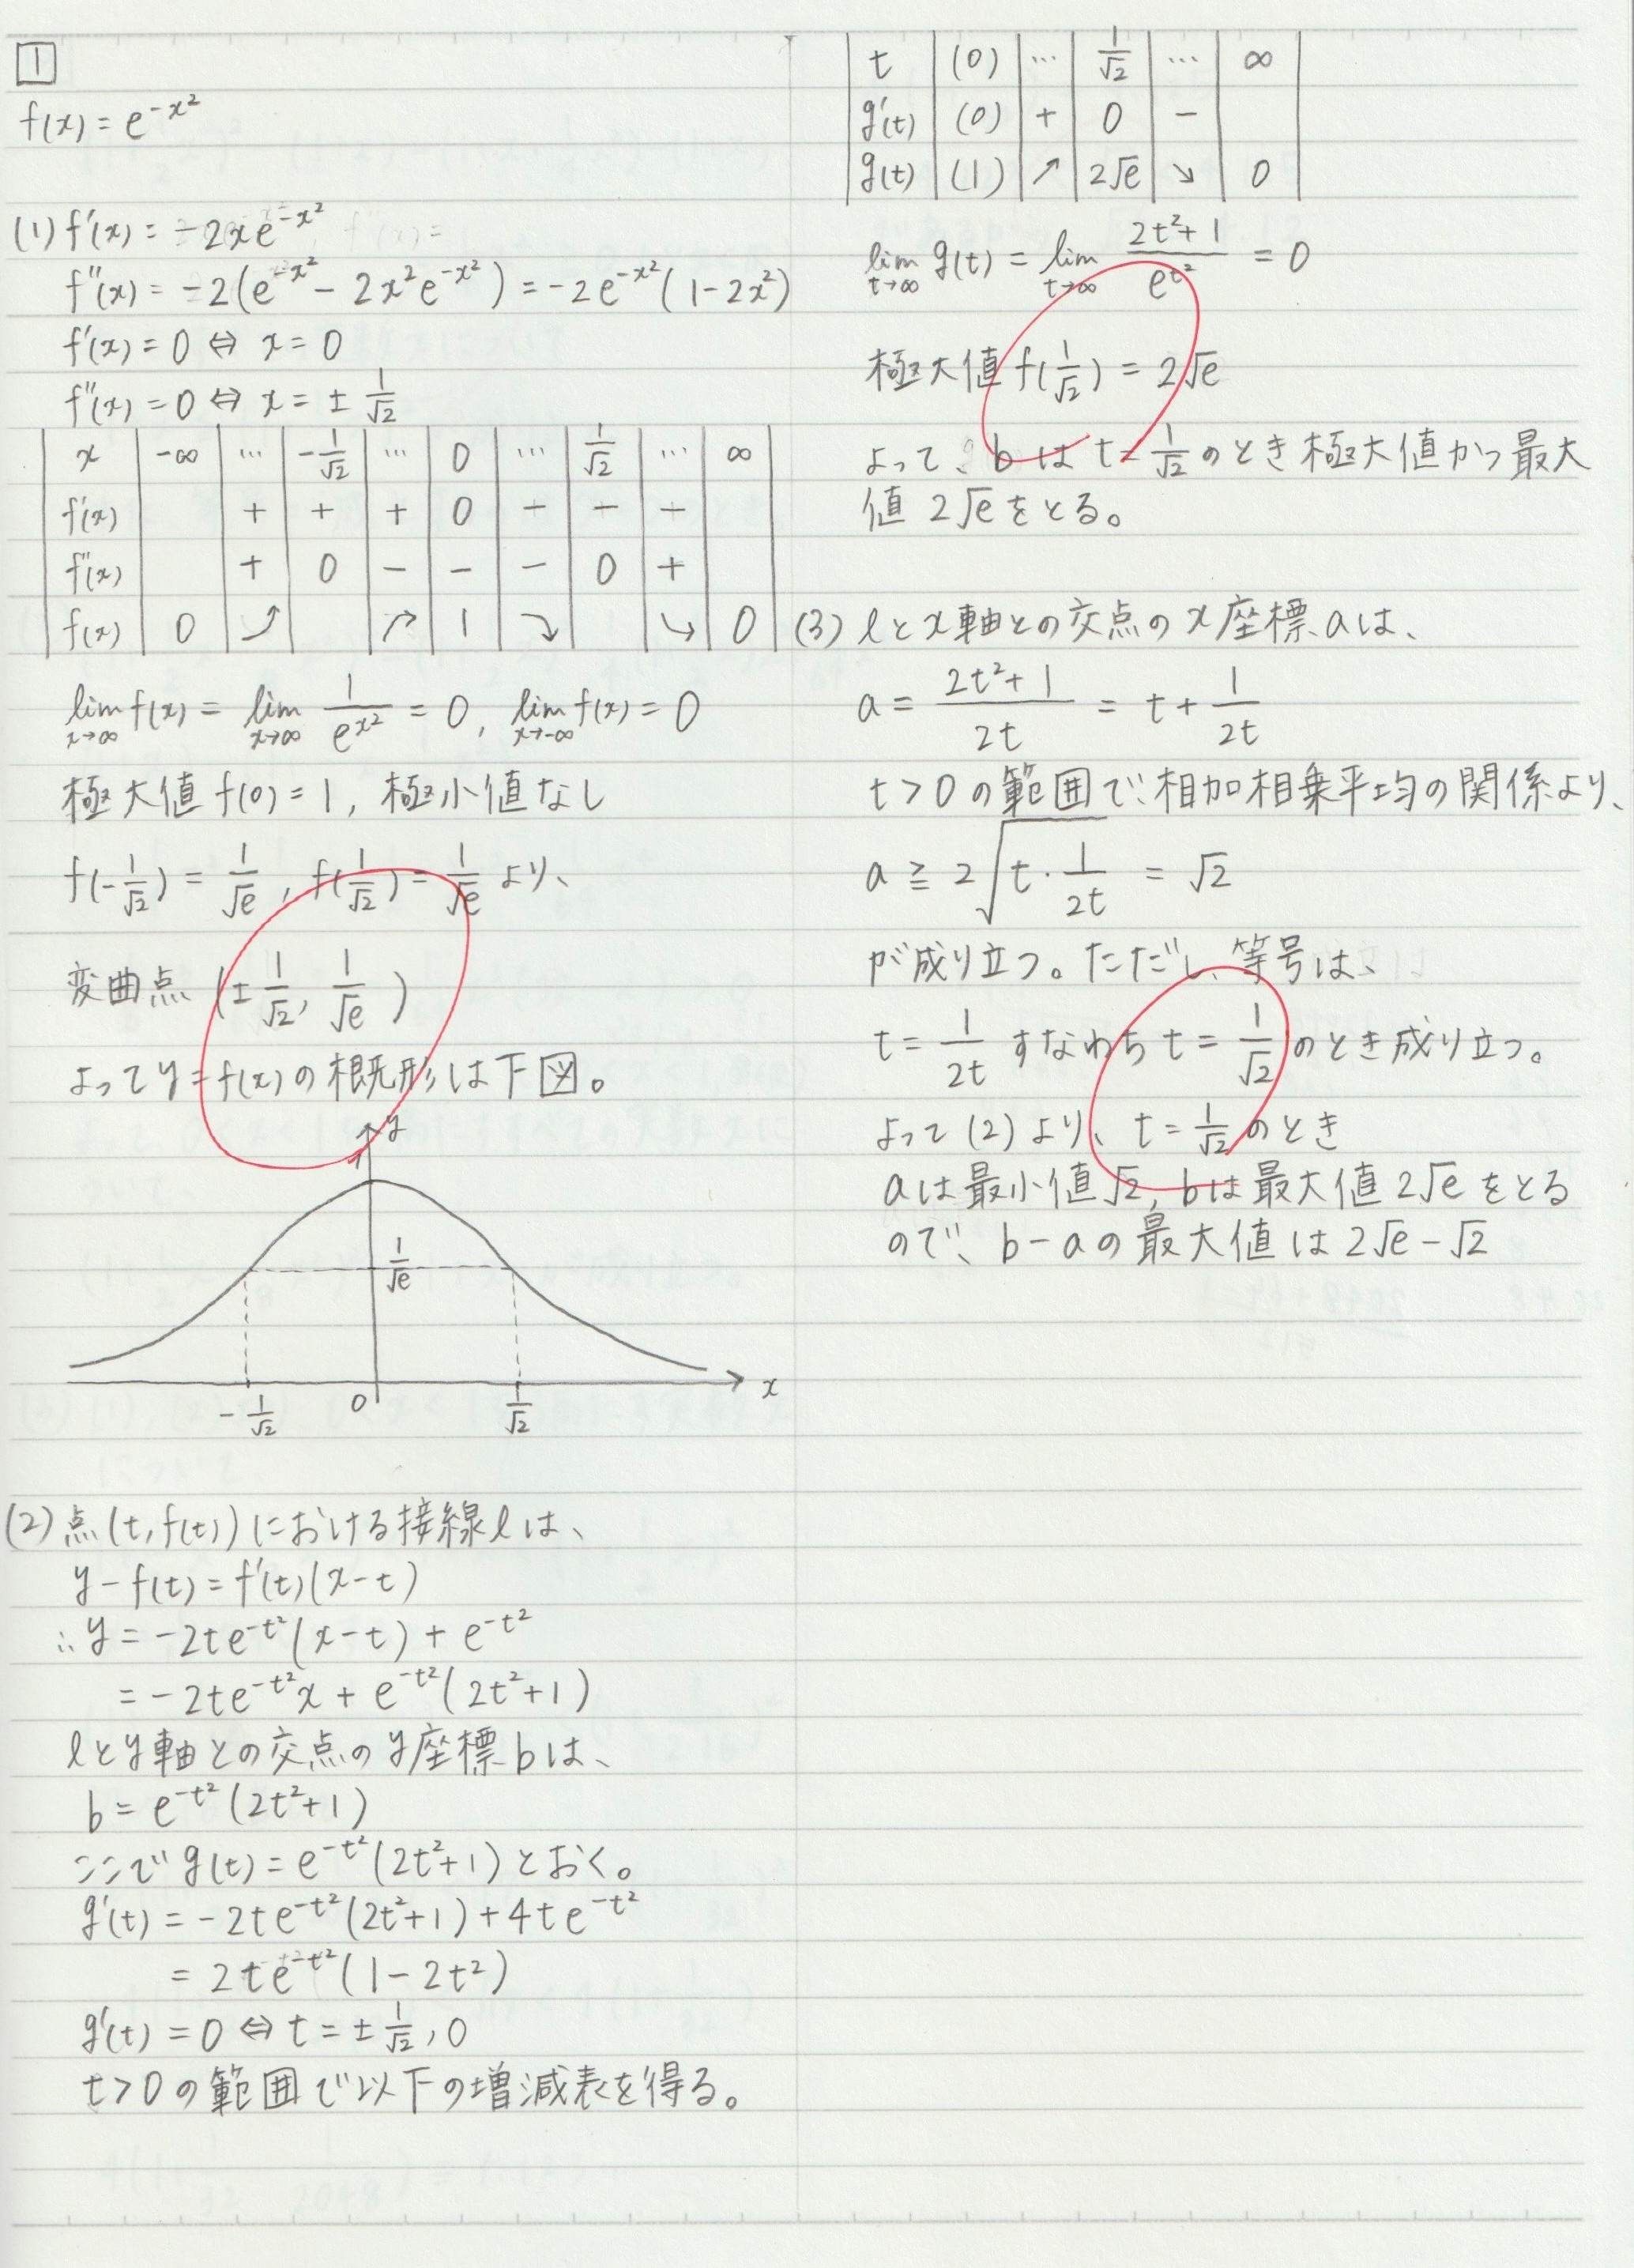 1
f(x) = e^{-x^2}
(1) f'(x) = -2xe^{-x^2}
f''(x) = -2(e^{-x^2} - 2x^2e^{-x^2}) = -2e^{-x^2}(1-2x^2)
f'(x) = 0 ⇔ x = 0
f''(x) = 0 ⇔ x = ± 1/√2
x | -∞ | … | -1/√2 | … | 0 | … | 1/√2 | … | ∞
f'(x) | | + | + | + | 0 | - | - | - |
f''(x) | | + | 0 | - | - | - | 0 | + |
f(x) | 0 | ⤴ | | ↱ | 1 | ⤵ | | ↳ | 0
lim_{x→∞} f(x) = lim_{x→∞} 1/e^{x^2} = 0, lim_{x→-∞} f(x) = 0
極大値 f(0) = 1, 極小値なし
f(-1/√2) = 1/√e, f(1/√2) = 1/√e より、
変曲点 (± 1/√2, 1/√e)
よって y = f(x) の概形は下図。
y
1
1/√e
-1/√2 0 1/√2 x
(2) 点(t, f(t)) における接線 l は、
y - f(t) = f'(t)(x-t)
∴ y = -2te^{-t^2}(x-t) + e^{-t^2}
= -2te^{-t^2}x + e^{-t^2}(2t^2+1)
l と y軸との交点の y座標 b は、
b = e^{-t^2}(2t^2+1)
ここで g(t) = e^{-t^2}(2t^2+1) とおく。
g'(t) = -2te^{-t^2}(2t^2+1) + 4te^{-t^2}
= 2te^{-t^2}(1-2t^2)
g'(t) = 0 ⇔ t = ± 1/√2, 0
t > 0 の範囲で以下の増減表を得る。
t | (0) | … | 1/√2 | … | ∞
g'(t) | (0) | + | 0 | - |
g(t) | (1) | ↗ | 2√e | ↘ | 0
lim_{t→∞} g(t) = lim_{t→∞} (2t^2+1)/e^{t^2} = 0
極大値 f(1/√2) = 2√e
よって、b は t = 1/√2 のとき極大値かつ最大
値 2√e をとる。
(3) l と x軸との交点の x座標 a は、
a = (2t^2+1)/2t = t + 1/2t
t > 0 の範囲で、相加相乗平均の関係より、
a ≧ 2√(t · 1/2t) = √2
が成り立つ。ただし、等号は、
t = 1/2t すなわち t = 1/√2 のとき成り立つ。
よって (2) より、 t = 1/√2 のとき
a は最小値 √2, b は最大値 2√e をとる
ので、b - a の最大値は 2√e - √2